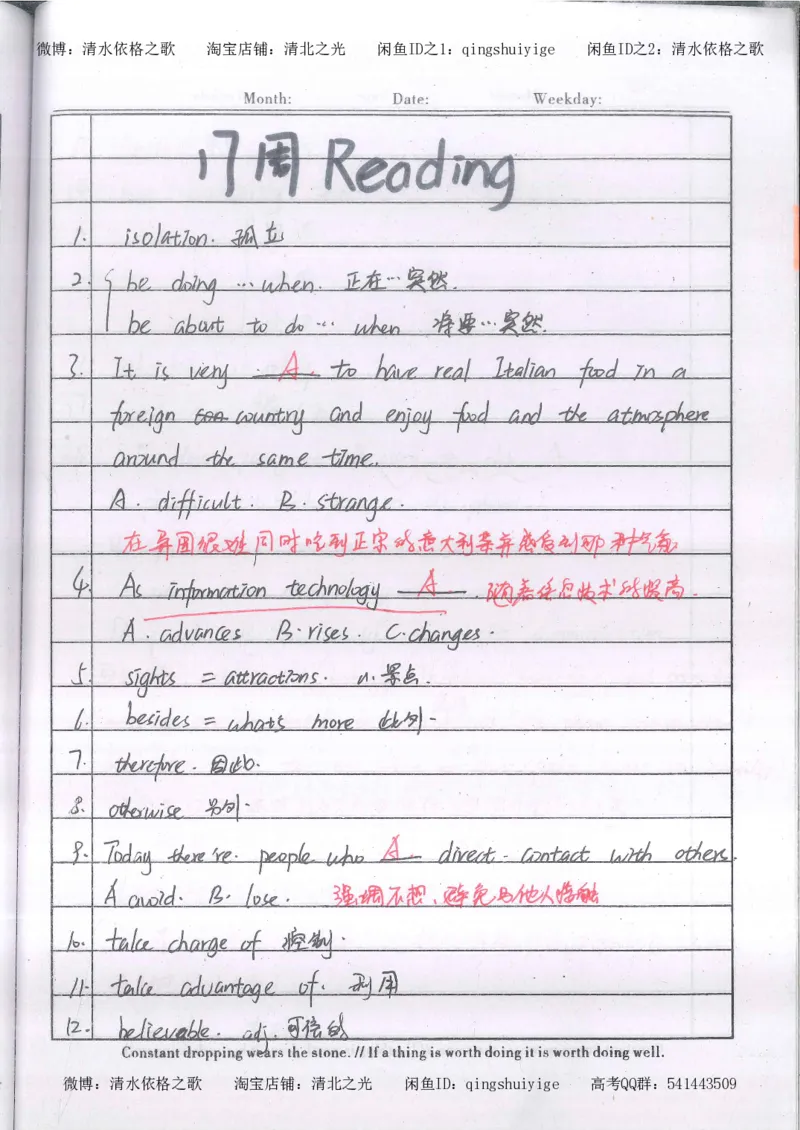 微博：清水依格之歌 淘宝店铺：清北之光 闲鱼ID之1：qingshuiyige 闲鱼ID之2：清水依格之歌
Month: Date: Weekday:
17周 Reading
1. isolation. 孤立
2. { be doing … when. 正在…突然.
be about to do … when 将要…突然.
3. It is very A. to have real Italian food in a
foreign country and enjoy food and the atmosphere
around the same time.
A. difficult. B. strange.
在异国很难同时吃到正宗的意大利菜并感受到那种气氛
4. As information technology A. 随着信息技术的提高.
A. advances B. rises. C. changes.
5. sights = attractions. n. 景点.
6. besides = what's more 此外.
7. therefore. 因此.
8. otherwise 另外.
9. Today there're. people who A. direct. contact with others.
A avoid. B. lose. 强调不想、避免与他人接触
10. take charge of 控制.
11. take advantage of. 利用
12. believable. adj. 可信的
Constant dropping wears the stone. // If a thing is worth doing it is worth doing well.
微博：清水依格之歌 淘宝店铺：清北之光 闲鱼ID：qingshuiyige 高考QQ群：541443509